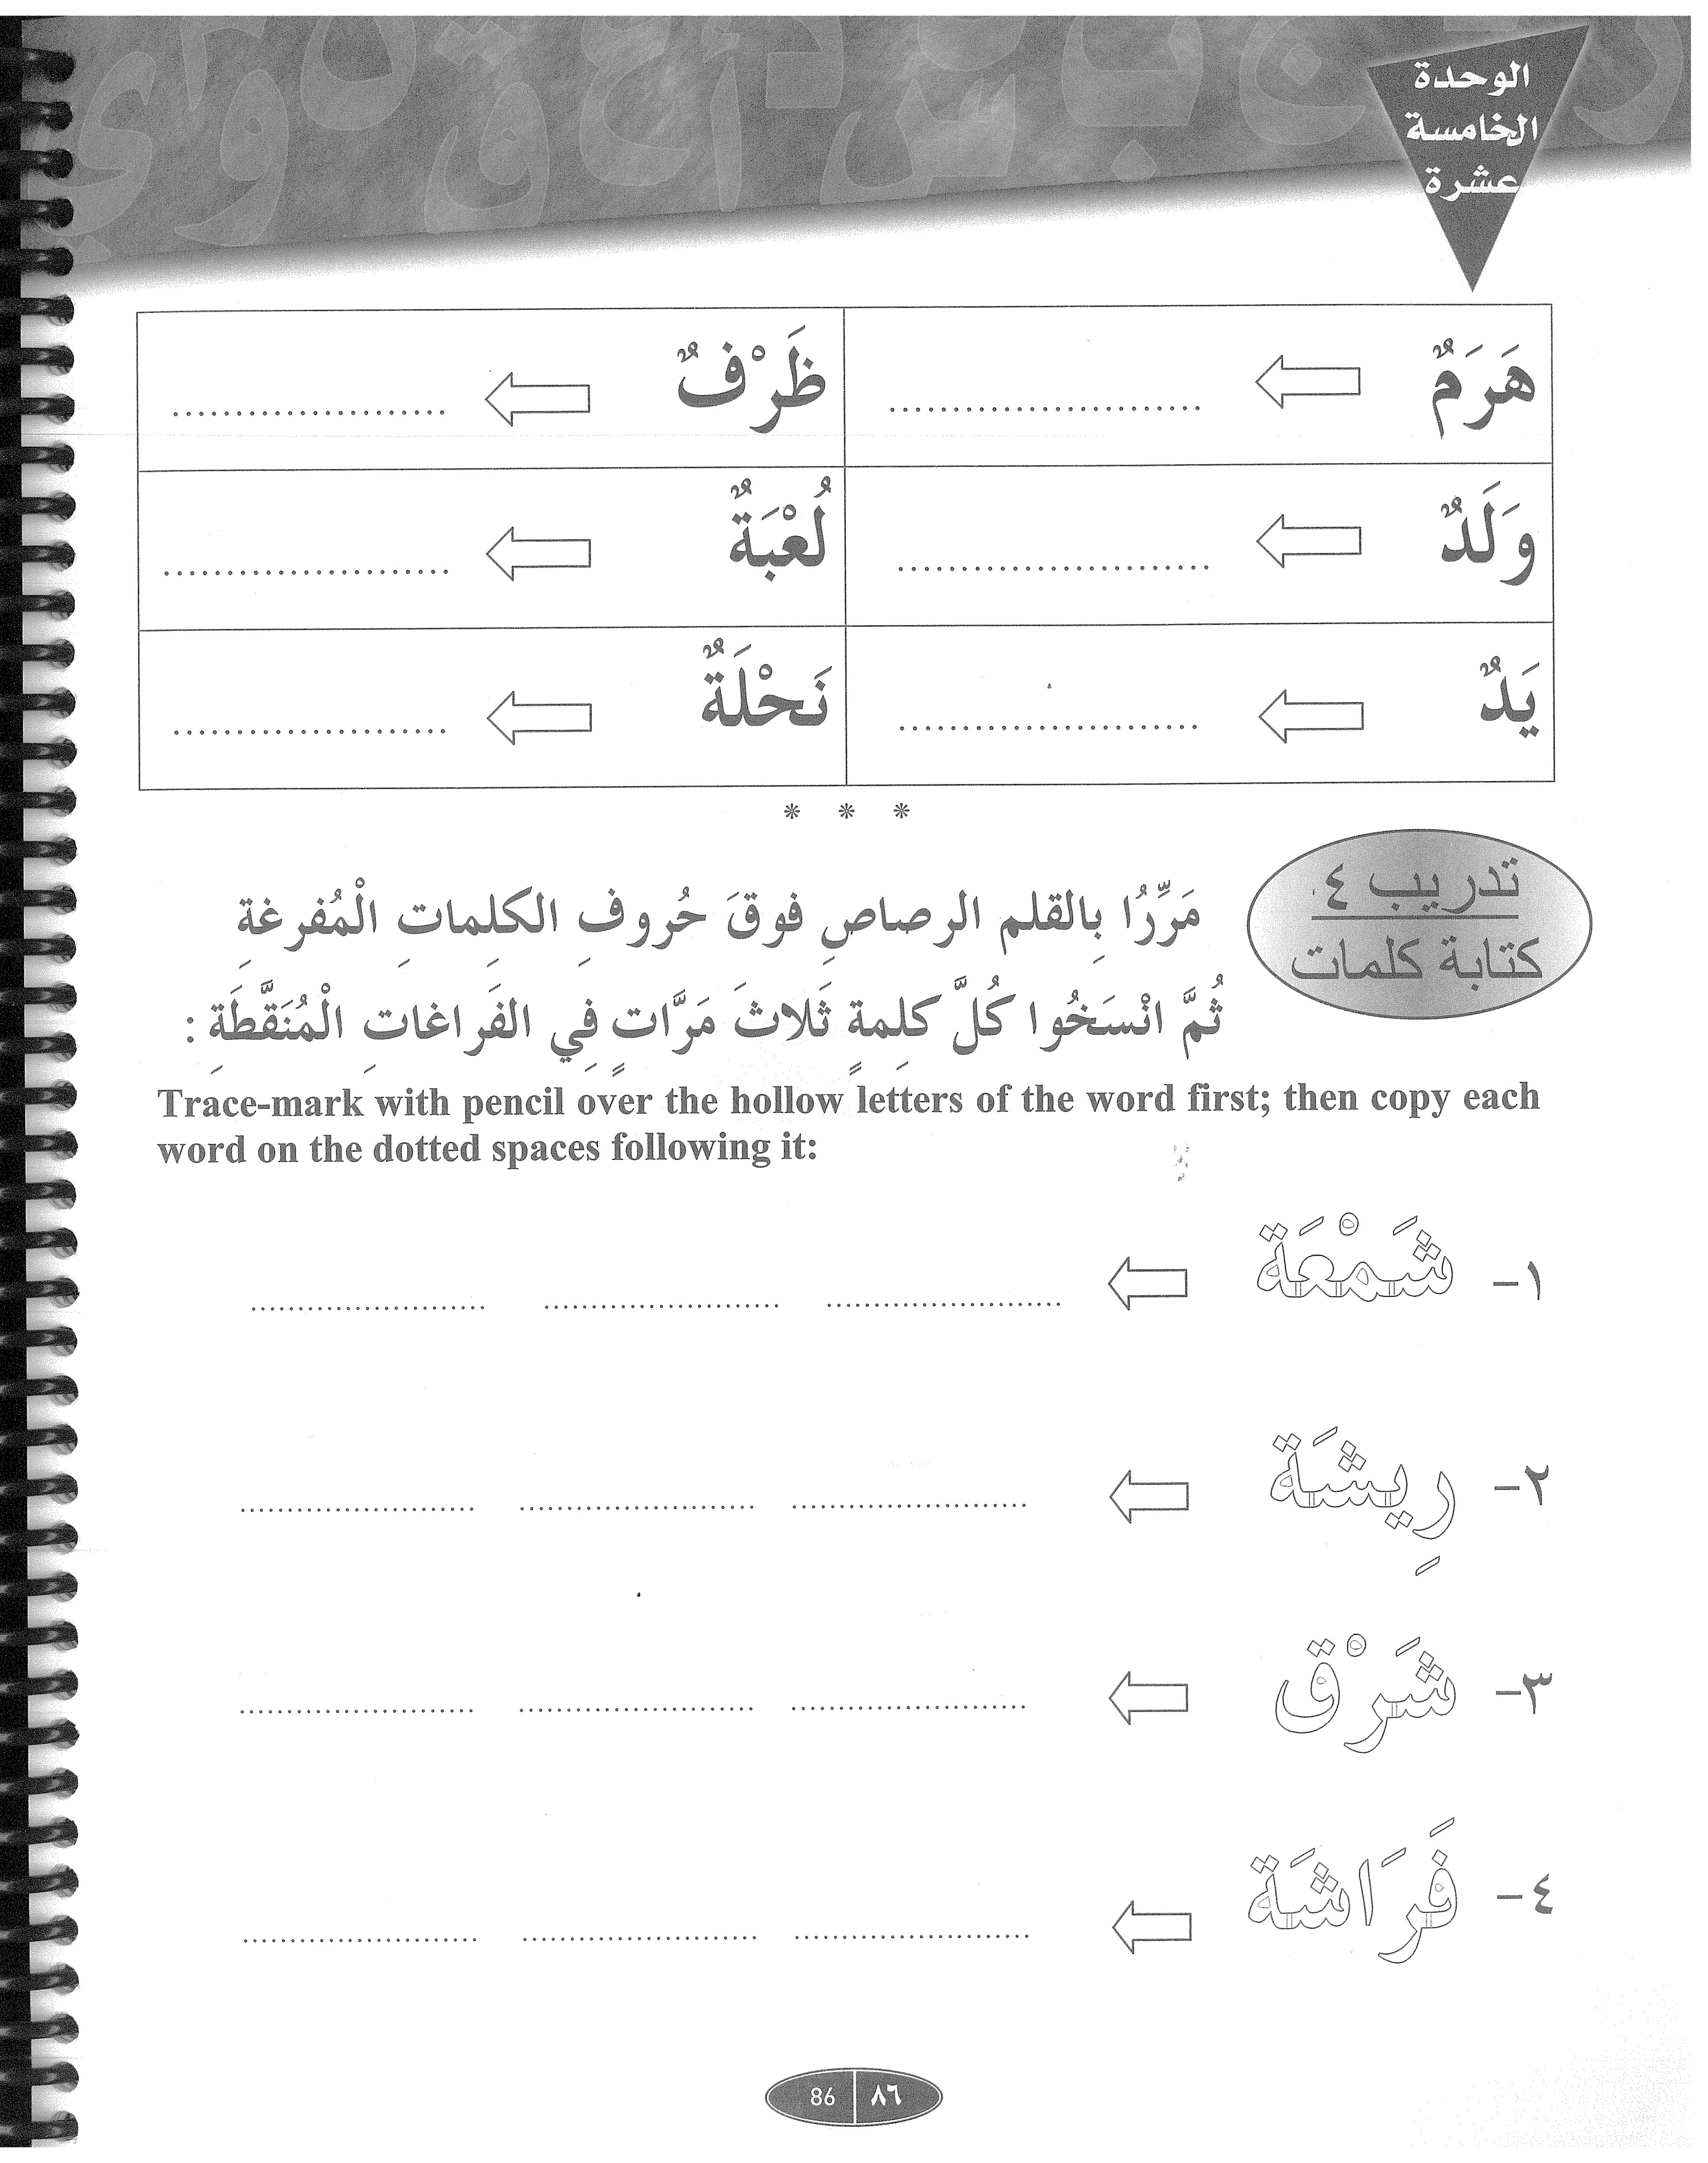 الوحدة
الخامسة
عشرة
هَرَمٌ ........................ ظَرْفٌ ........................
وَلَدٌ ........................ لُعْبَةٌ ........................
يَدٌ ........................ نَحْلَةٌ ........................
* * *
تدريب ٤
كتابة كلمات
مَرِّرُا بِالقلم الرصاصِ فوقَ حُروفِ الكلِماتِ الْمُفرغةِ
ثُمَّ انْسَخُوا كُلَّ كلِمةٍ ثَلاثَ مَرَّاتٍ فِي الفَراغاتِ الْمُنَقَّطَةِ :
Trace-mark with pencil over the hollow letters of the word first; then copy each
word on the dotted spaces following it:
١- شَمْعَة ........................ ........................ ........................
٢- رِيشَة ........................ ........................ ........................
٣- شَرْق ........................ ........................ ........................
٤- فَرَاشَة ........................ ........................ ........................
86 ٨٦